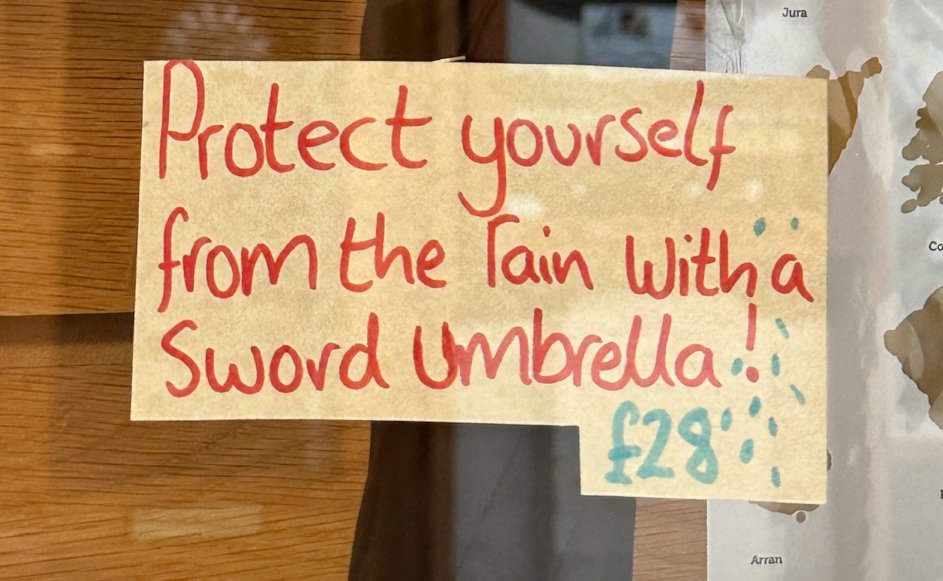 Jura
Protect yourself
from the rain with a
Sword Umbrella!
£28
Co
Arran